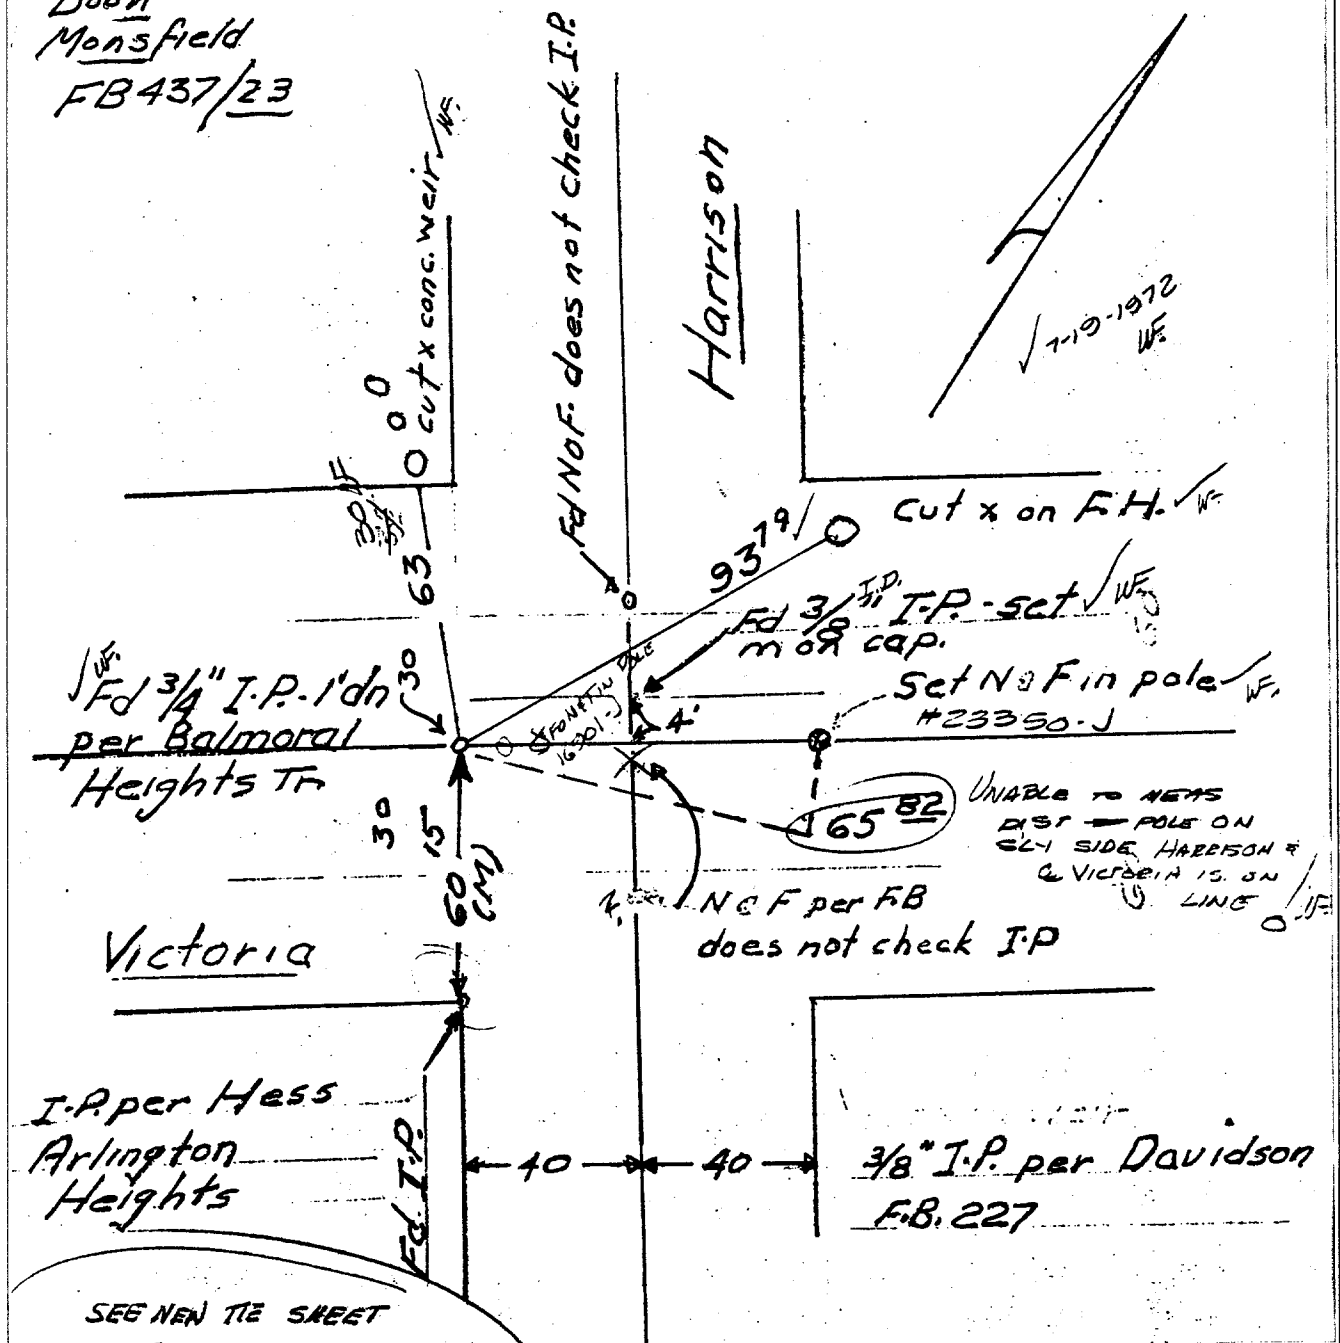 Mansfield
FB 437/23
cut x conc. weir √ WF.
Fd N&F. does not check I.P.
Harrison
√ 7-19-1972
WF.
63
93 79 √
cut x on F.H. √ WF.
Fd 3/8" I.D. I.P. - set √ WF.
mon cap.
√ WF.
Fd 3/4" I.P. - 1' dn
per Balmoral
Heights Tr
30
4'
Set N&F in pole √ WF.
#23350-J
30
60 15
(M)
65 82
UNABLE TO MEAS
DIST — POLE ON
SLY SIDE HARRISON &
℄ VICTORIA IS ON
LINE
N&F per FB
does not check I.P
Victoria
I.P. per Hess
Arlington
Heights
Fd. I.P.
40
40
3/8" I.P. per Davidson
F.B. 227
SEE NEW TIE SHEET